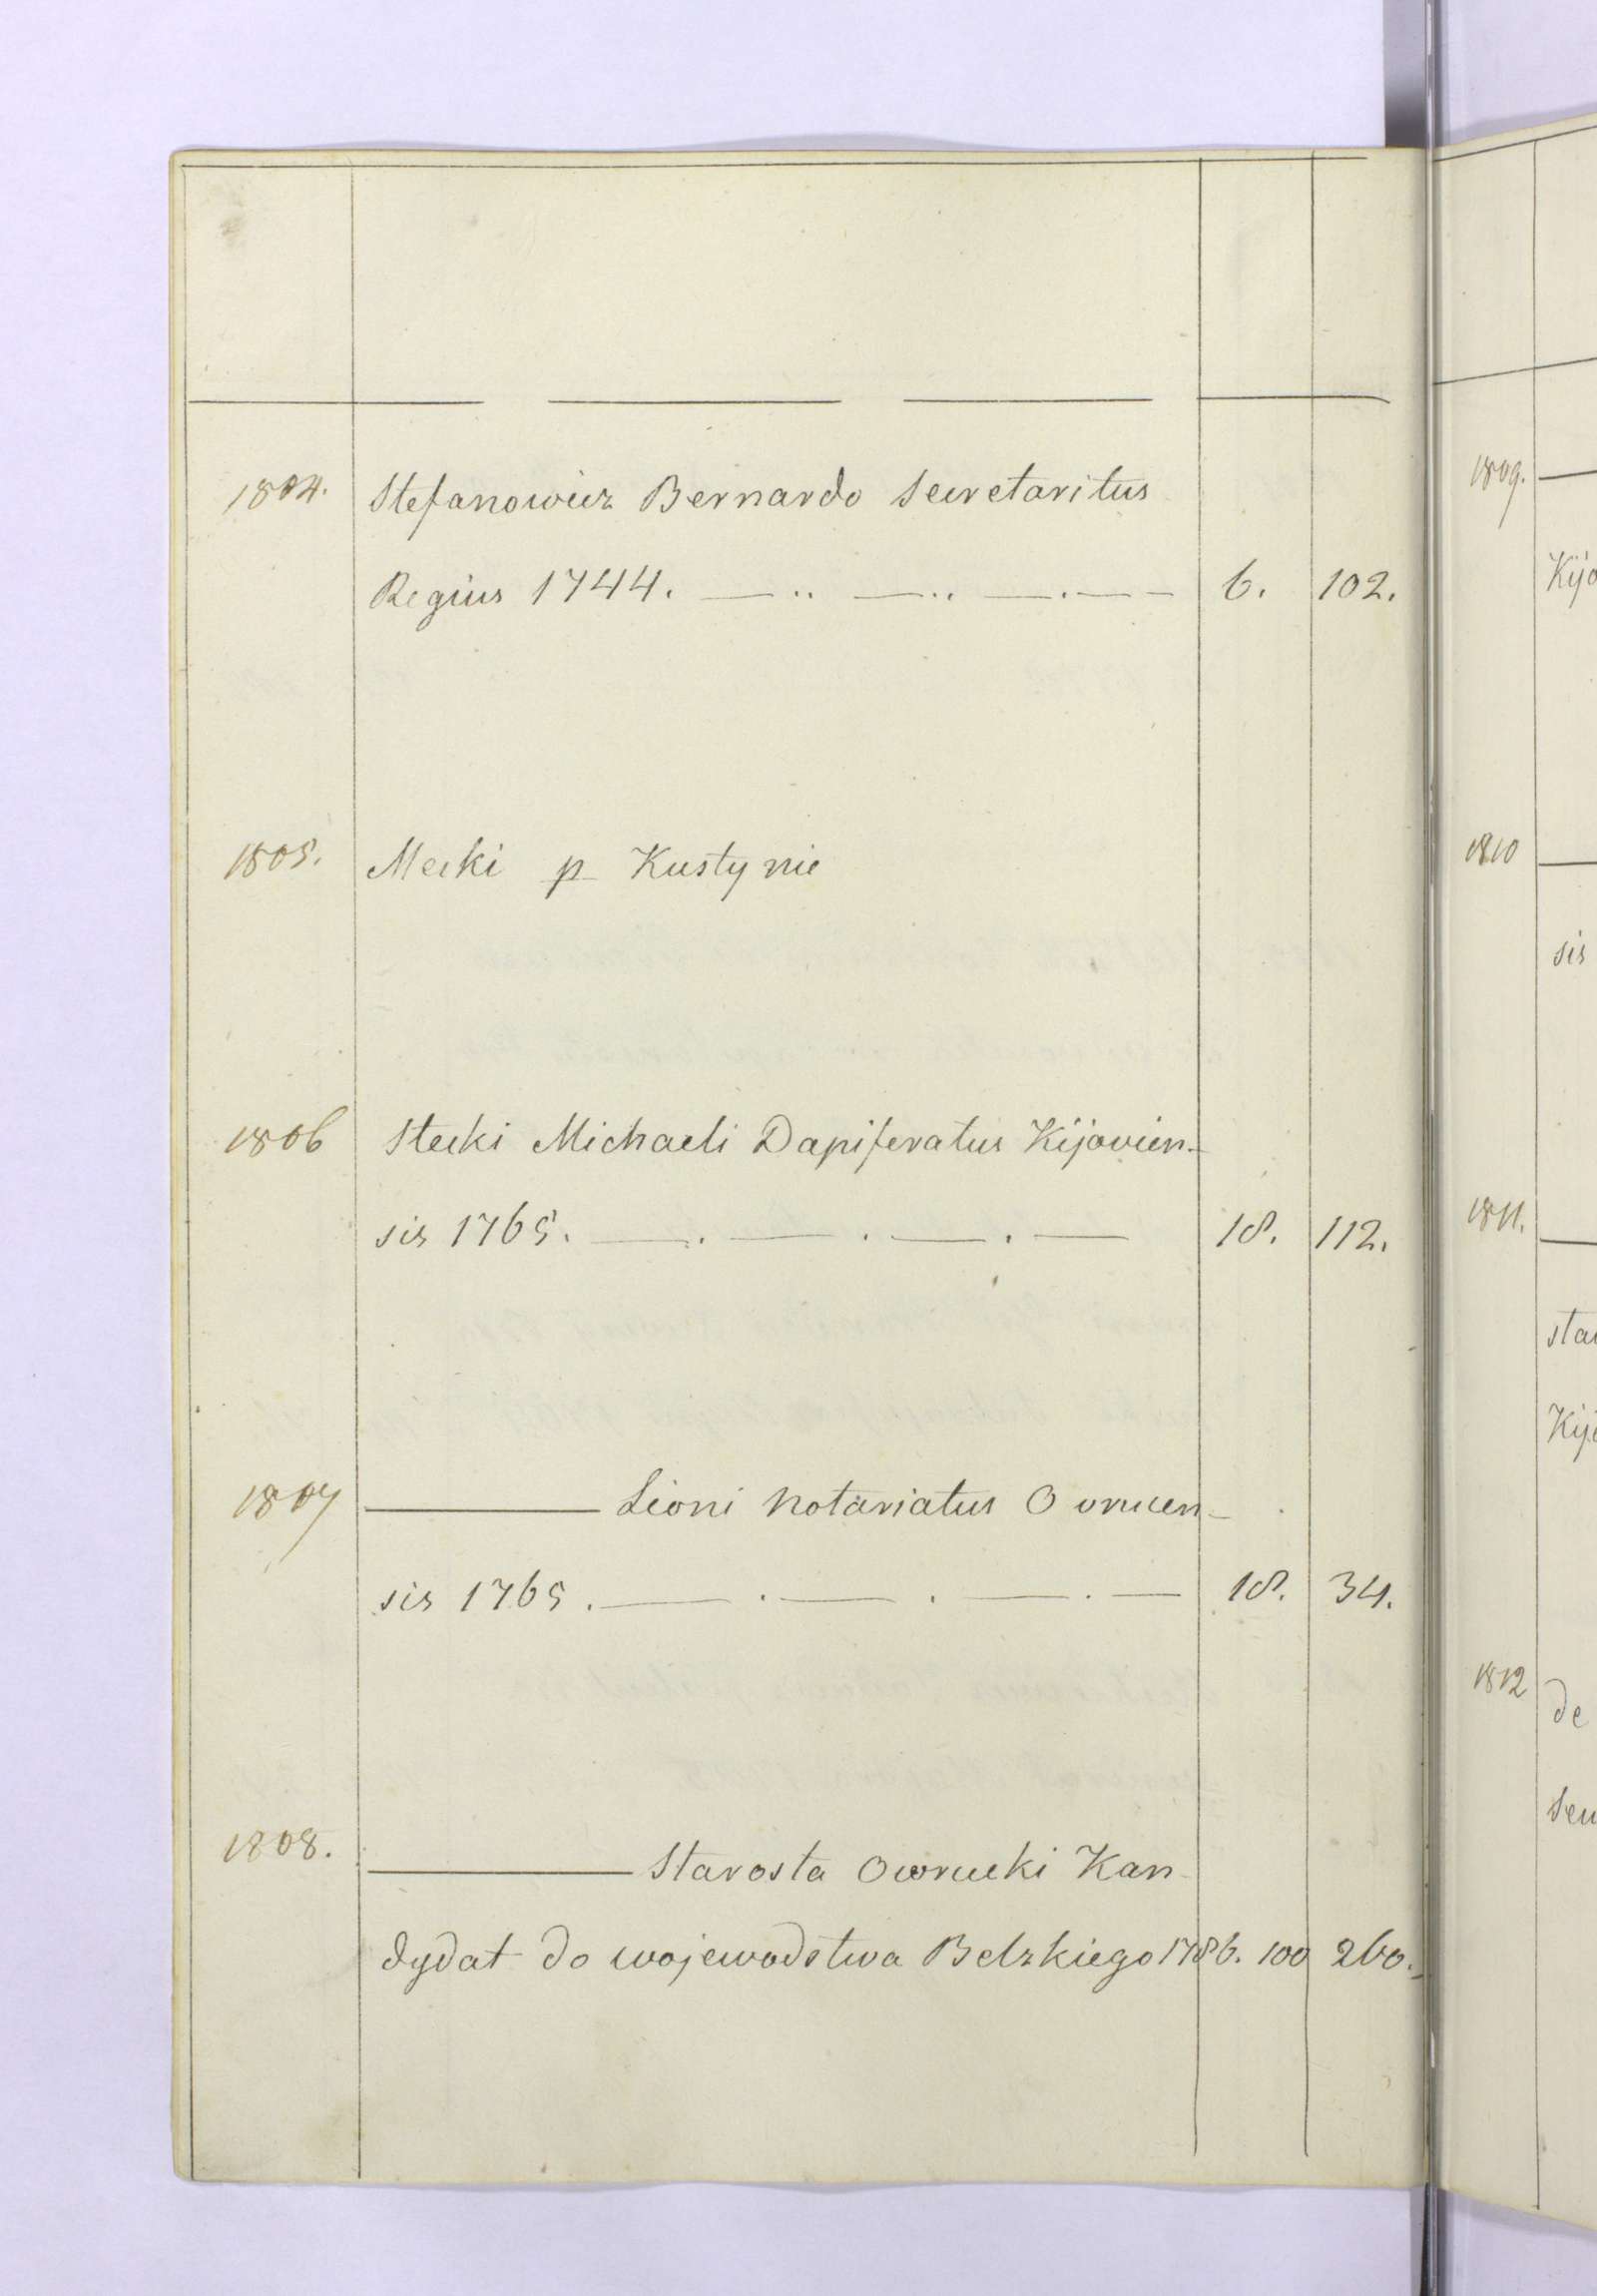 1804. Stefanowicz Bernardo Secretaritus
Regius 1744. 6. 102.
1805. Mecki p Kustynie
1806 Stecki Michaeli Dapiferatus Kijovien-
sis 1765. 18. 112.
1807 ——— Lioni Notariatus Ovrucen-
sis 1765. 18. 34.
1808. ——— Starosta Owrucki Kan
dydat do wojewodstwa Belzkiego 1786. 100 260.
1809.
Kijo
1810
sis
1811.
sta
Kijo
1812 de